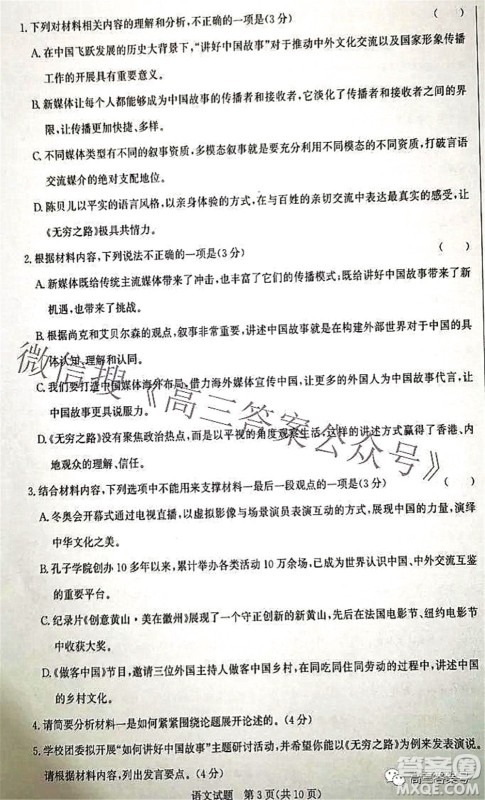 1.下列对材料相关内容的理解和分析,不正确的一项是(3分) (  )
A.在中国飞跃发展的历史大背景下,“讲好中国故事”对于推动中外文化交流以及国家形象传播
工作的开展具有重要意义。
B.新媒体让每个人都能够成为中国故事的传播者和接收者,它淡化了传播者和接收者之间的界
限,让传播更加快捷、多样。
C.不同媒体类型有不同的叙事资质,多模态叙事就是要充分利用不同模态的不同资质,打破言语
交流媒介的绝对支配地位。
D.陈贝儿以平实的语言风格,以亲身体验的方式,在与百姓的亲切交流中表达最真实的感受,让
《无穷之路》极具共情力。
2.根据材料内容,下列说法不正确的一项是(3分) (  )
A.新媒体既给传统主流媒体带来了冲击,也丰富了它们的传播模式;既给讲好中国故事带来了新
机遇,也带来了挑战。
B.根据尚克和艾贝尔森的观点,叙事非常重要,讲述中国故事就是在构建外部世界对于中国的具
体认知、理解和认同。
C.我们要打造中国媒体海外布局,借力海外媒体宣传中国,让更多的外国人为中国故事代言,让
中国故事更具说服力。
D.《无穷之路》没有聚焦政治热点,而是以平视的角度观察生活,这样的讲述方式赢得了香港、内
地观众的理解、信任。
3.结合材料内容,下列选项中不能用来支撑材料一最后一段观点的一项是(3分) (  )
A.冬奥会开幕式通过电视直播,以虚拟影像与场景演员表演互动的方式,展现了中国的力量,演绎
中华文化之美。
B.孔子学院创办10多年以来,累计举办各类活动10万余场,已成为世界认识中国、中外交流互鉴
的重要平台。
C.纪录片《创意黄山·美在徽州》展现了一个守正创新的新黄山,先后在法国电影节、纽约电影节
中收获大奖。
D.《做客中国》节目,邀请三位外国主持人做客中国乡村,在同吃同住同劳动的过程中,讲述中国
的乡村文化。
4.请简要分析材料一是如何紧紧围绕论题展开论述的。(4分)
5.学校团委拟开展“如何讲好中国故事”主题研讨活动,并希望你能以《无穷之路》为例来发表演说。
请根据材料内容,列出发言要点。(4分)
语文试题 第3页(共10页)
微信搜《高三答案公众号》